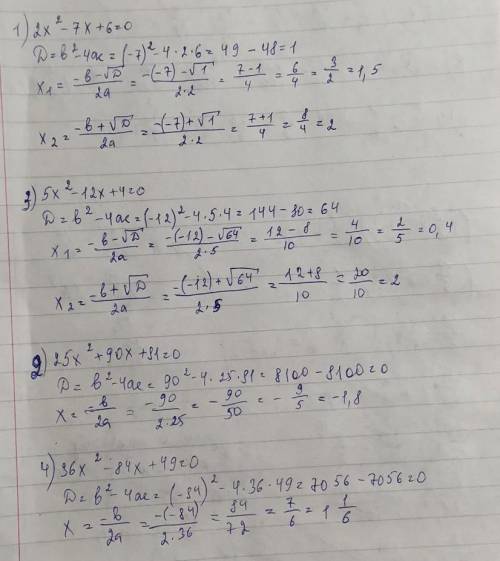 1) 2x² - 7x + 6 = 0
D = b² - 4ac = (-7)² - 4·2·6 = 49 - 48 = 1
x₁ = (-b - √D)/2a = (-(-7) - √1)/2·2 = (7-1)/4 = 6/4 = 3/2 = 1,5
x₂ = (-b + √D)/2a = (-(-7) + √1)/2·2 = (7+1)/4 = 8/4 = 2
3) 5x² - 12x + 4 = 0
D = b² - 4ac = (-12)² - 4·5·4 = 144 - 80 = 64
x₁ = (-b - √D)/2a = (-(-12) - √64)/2·5 = (12 - 8)/10 = 4/10 = 2/5 = 0,4
x₂ = (-b + √D)/2a = (-(-12) + √64)/2·5 = (12+8)/10 = 20/10 = 2
2) 25x² + 90x + 81 = 0
D = b² - 4ac = 90² - 4·25·81 = 8100 - 8100 = 0
x = -b/2a = -90/2·25 = -90/50 = -9/5 = -1,8
4) 36x² - 84x + 49 = 0
D = b² - 4ac = (-84)² - 4·36·49 = 7056 - 7056 = 0
x = -b/2a = -(-84)/2·36 = 84/72 = 7/6 = 1 1/6